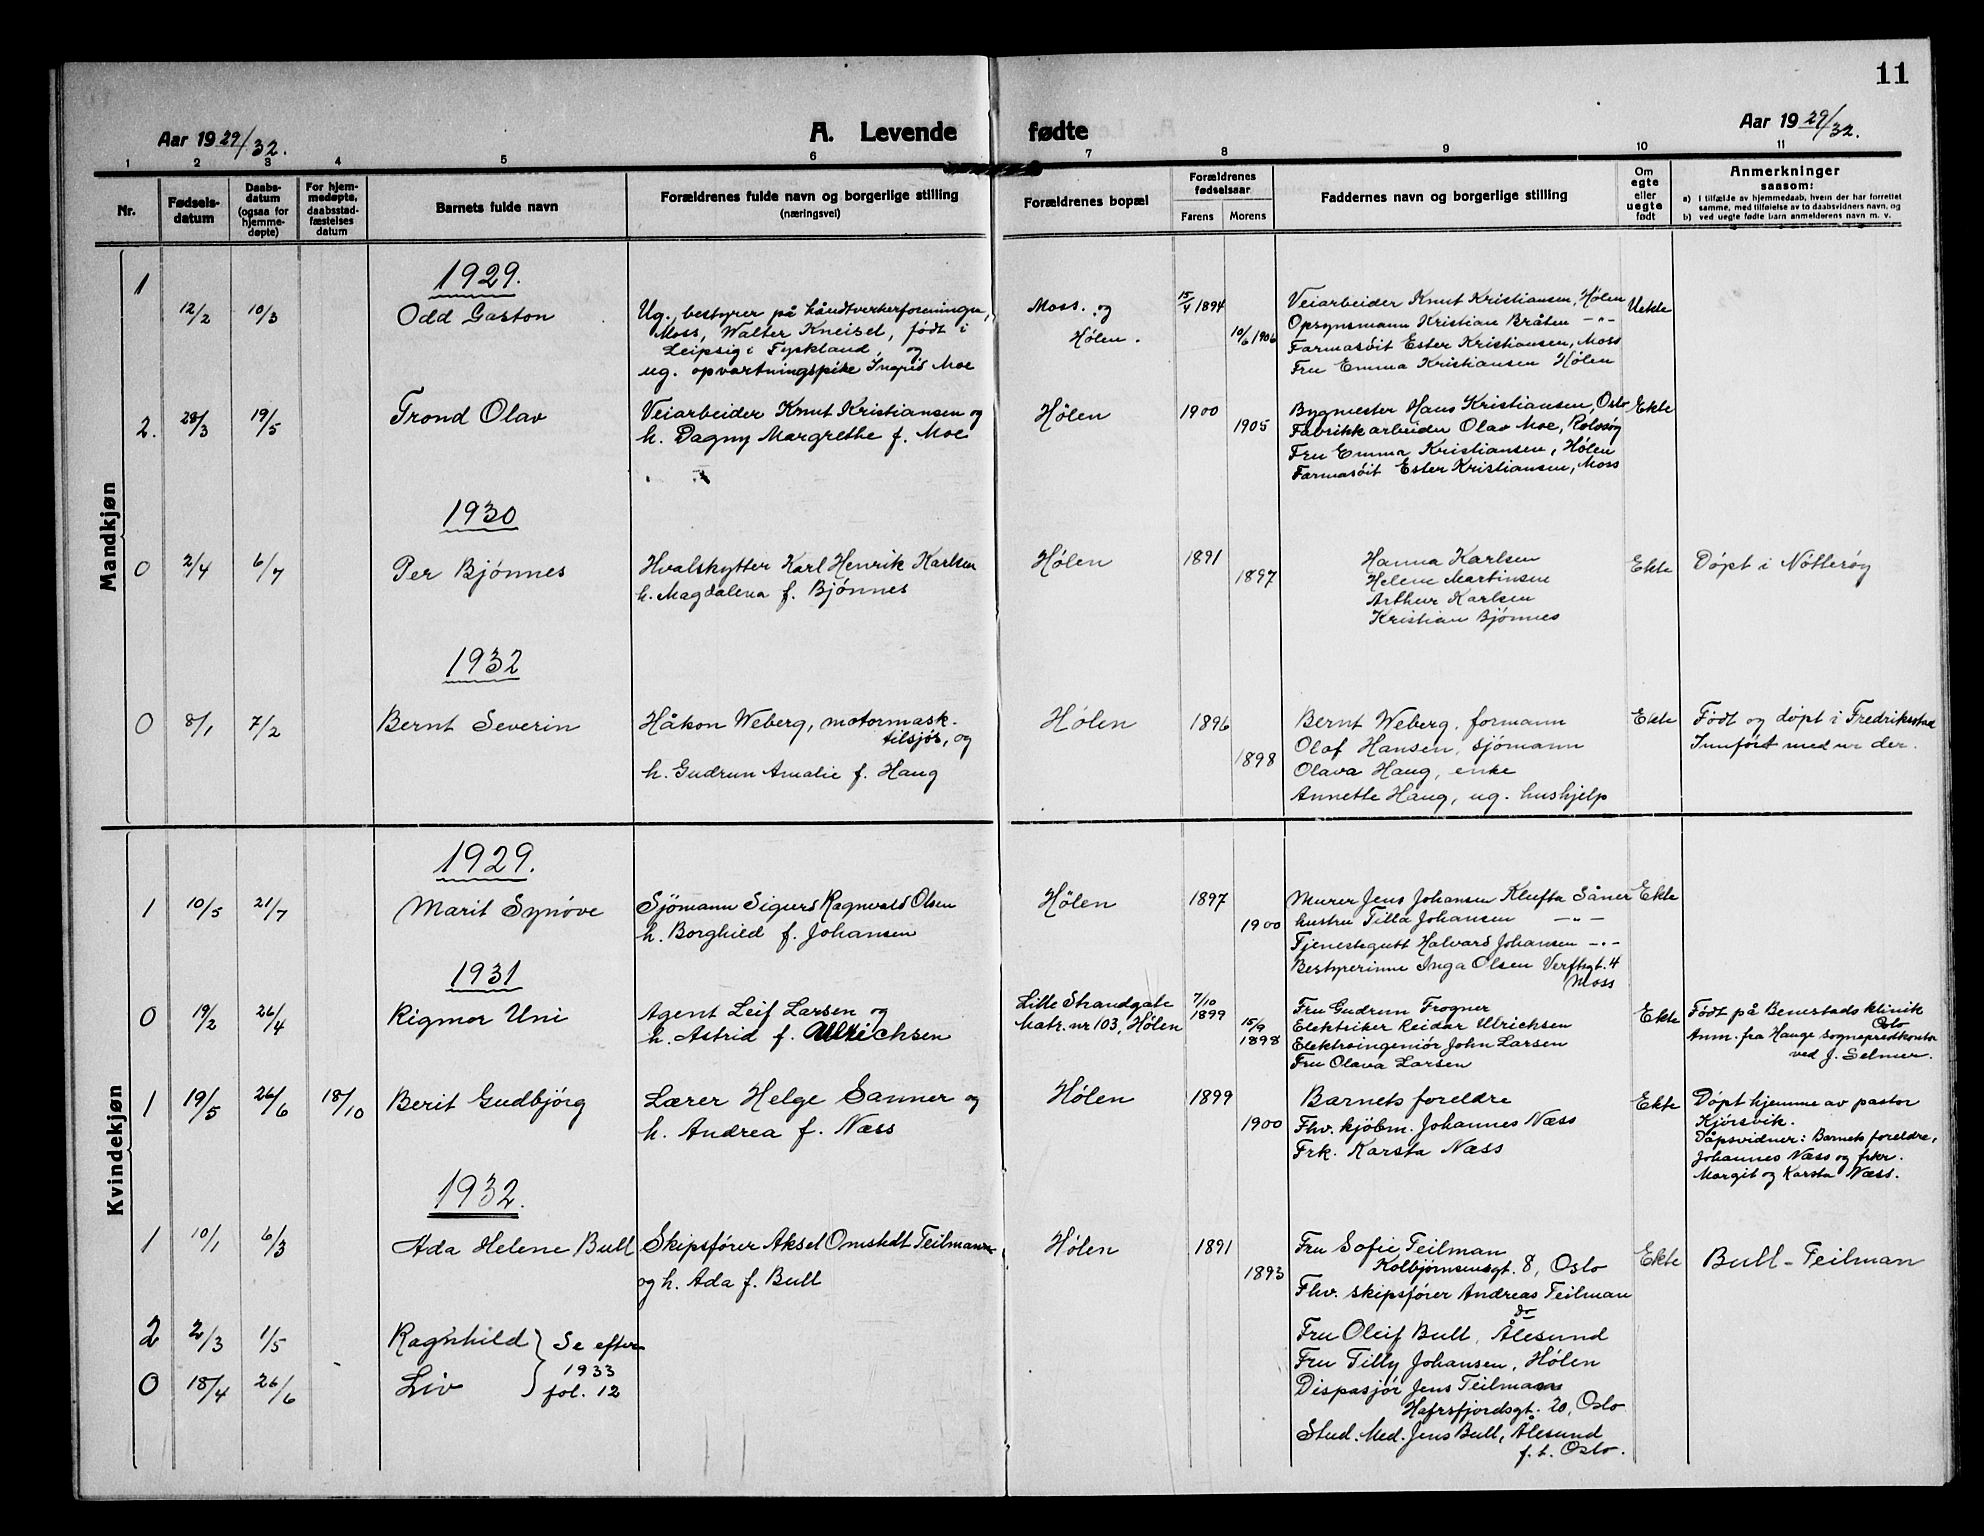 11
Aar 1929/32.
A. Levende fødte
Aar 1929/32.
1 2 3 4 5 6 7 8 9 10 11
Nr.
Fødsels-
datum
Daabs-
datum
(ogsaa for
hjemme-
døpte)
For hjem-
medøpte,
daabsstad-
fæstelses
datum
Barnets fulde navn
Forældrenes fulde navn og borgerlige stilling
(næringsvei)
Forældrenes bopæl
Forældrenes
fødselsaar
Farens Morens
Faddernes navn og borgerlige stilling
Om
egte
eller
uegte
født
Anmerkninger
saasom:
a) I tilfælde av hjemmedaab, hvem der har forrettet
samme, med tilføielse av to daabsvidners navn, og
b) ved uegte fødte barn anmelderens navn m. v.
Mandkjøn
1929.
1 12/2 10/3 Odd Gaston
Ug. bestyrer på håndtverkerforeningen,
Moss, Walter Kneisel, født i
Leipsig i Tyskland, og
ug. opvartningspike Ingrid Moe
Moss. og
Hölen.
15/4 1894
10/6 1906
Veiarbeider Knut Kristiansen, Hølen
Opsynsmann Kristian Bråten -"-
Farmasöit Ester Kristiansen, Moss
Fru Emma Kristiansen Hölen
Uekte
2. 28/3 19/5 Trond Olav
Veiarbeider Knut Kristiansen og
h. Dagny Margrethe f. Moe
Hölen
1900
1905
Bygmester Hans Kristiansen, Oslo
Fabrikkarbeider Olav Moe, Rolvsøy
Fru Emma Kristiansen, Hølen
Farmasöit Ester Kristiansen, Moss
Ekte
1930
0 2/4 6/7 Per Bjønnes
Hvalskytter Karl Henrik Karlsen
h. Magdalena f. Bjønnes
Hölen
1891
1897
Hanna Karlsen
Helene Martinsen
Arthur Karlsen
Kristian Bjønnes
Ekte
Döpt i Nötterøy
1932
0 8/1 7/2 Bernt Severin
Håkon Weberg, motormask-
tilsjøs, og
h. Gudrun Amalie f. Haug
Hölen
1896
1898
Bernt Weberg. formann
Olaf Hansen, sjömann
Olava Haug, enke
Annette Haug, ug. hushjelp
Ekte
Født og döpt i Fredriksstad
Innført med nr der.
Kvindekjøn
1929.
1 10/5 21/7 Marit Synöve
Sjömann Sigurd Ragnvald Olsen
h. Borghild f. Johansen
Hölen
1897
1900
Murer Jens Johansen Klufta Såner
hustru Tilla Johansen -"-
Tjenestegutt Halvard Johansen -"-
Bestyrerinne Inga Olsen Verftsgt. 4
Moss
Ekte
1931
0 19/2 26/4 Rigmor Uni
Agent Leif Larsen og
h. Astrid f. Ulrichsen
Lille Strandgate
Matr. nr 103, Hölen
7/10
1899
15/9
1898
Fru Gudrun Frogner
Elektriker Reidar Ulrichsen
Elektroingeniör John Larsen
Fru Olava Larsen
Ekte
Født på Benestads klinik
Oslo
Anm. fra Hauge sogneprestkontor
ved J. Selmer.
1 19/5 26/6 18/10 Berit Gudbjörg
Lærer Helge Sanner og
h. Andrea f. Næss
Hölen
1899
1900
Barnets foreldre
Fhv. kjöbm. Johannes Næss
Frk. Karsta Næss
Ekte
Döpt hjemme av pastor
Kjörsvik.
Dåpsvidner: Barnets foreldre,
Johannes Næss og frkr.
Margit og Karsta Næss.
1932.
1 10/1 6/3 Ada Helene Bull
Skipsfører Aksel Omstedt Teilmann
og h. Ada f. Bull
Hölen
1891
1893
Fru Sofie Teilman
Kolbjørnsensgt. 8, Oslo
Fhv. skipsfører Andreas Teilman
do
Fru Oleif Bull, Ålesund
Fru Tilly Johansen, Hölen
Dispasjör Jens Teilmann
Hafrsfjordsgt. 20, Oslo
Stud. Med. Jens Bull, Ålesund
f. t. Oslo.
Ekte
Bull-Teilman
2 2/3 1/5 Ragnhild
0 18/4 26/6 Liv
Se efter
1933
fol. 12